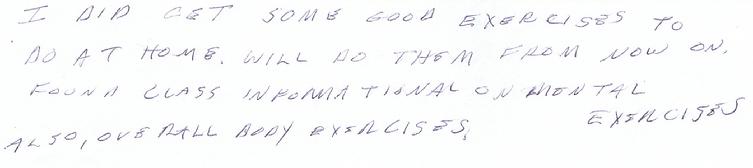 I DID GET SOME GOOD EXERCISES TO
DO AT HOME. WILL DO THEM FROM NOW ON.
FOUND CLASS INFORMATIONAL ON MENTAL
EXERCISES
ALSO, OVERALL BODY EXERCISES.